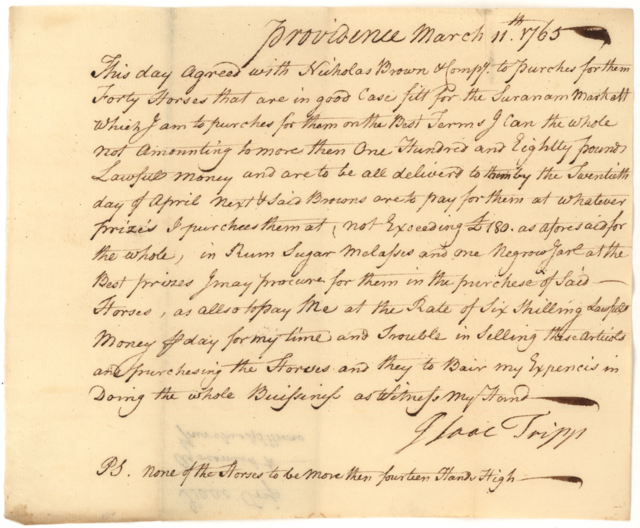 Providence March 11th. 1765
This day Agreed with Nicholas Brown & Compy. to purches for them
Forty Horses that are in good Case fitt for the Suranam Markatt
which I am to purches for them on the Best Terms I Can the whole
not Amounting to more then One Hundred and Eightly pounds
Lawfull Money and are to be all deliverd to them by the Twentieth
day of April Next & Said Browns are to pay for them at whatever
prizes I purchees them at, not Exceeding £180. as aforesaid for
the whole, in Rum Sugar Melasses and one Negrow Garl at the
Best prizes I may procure for them in the purchese of Said
Horses, as allso to pay Me at the Rate of Six Shilling Lawfull
Money ⅌ day for my time and Trouble in Selling these Articls
and purchesing the Horses and they to Bair my Expencis in
Doing the whole Buissiness as Witness my Hand
Isaac Tripp
PS. none of the Horses to be more then fourteen Hands High